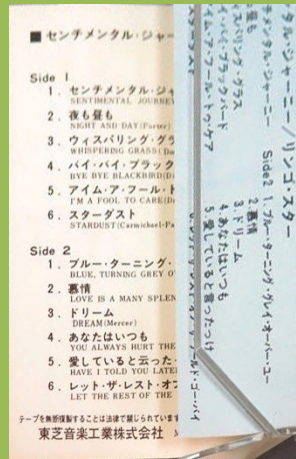 ■ センチメンタル・ジャー
Side 1
1. センチメンタル・ジャ
SENTIMENTAL JOURNEY
2. 夜も昼も
NIGHT AND DAY(Porter)
3. ウィスパリング・グラ
WHISPERING GRASS
4. バイ・バイ・ブラック
BYE BYE BLACKBIRD(D
5. アイム・ア・フール・ト
I'M A FOOL TO CARE(D
6. スターダスト
STARDUST(Carmichael-Pa
Side 2
1. ブルー・ターニング・
BLUE, TURNING GREY O
2. 慕情
LOVE IS A MANY SPLEN
3. ドリーム
DREAM(Mercer)
4. あなたはいつも
YOU ALWAYS HURT THE
5. 愛していると云った・
HAVE I TOLD YOU LATE
6. レット・ザ・レスト・オブ
LET THE REST OF THE
テープを無断複製することは法律で禁じられています
東芝音楽工業株式会社
ーニー/リンゴ・スター
チメンタル・ジャーニー
も昼も
ィスパリング・グラス
イ・バイ・ブラックバード
イム・ア・フール・トゥ・ケア
Side 2
1. ブルー・ターニング・グレイ・オーバー・ユー
2. 慕情
3. ドリーム
4. あなたはいつも
5. 愛していると言ったっけ
ールド・ゴー・バイ